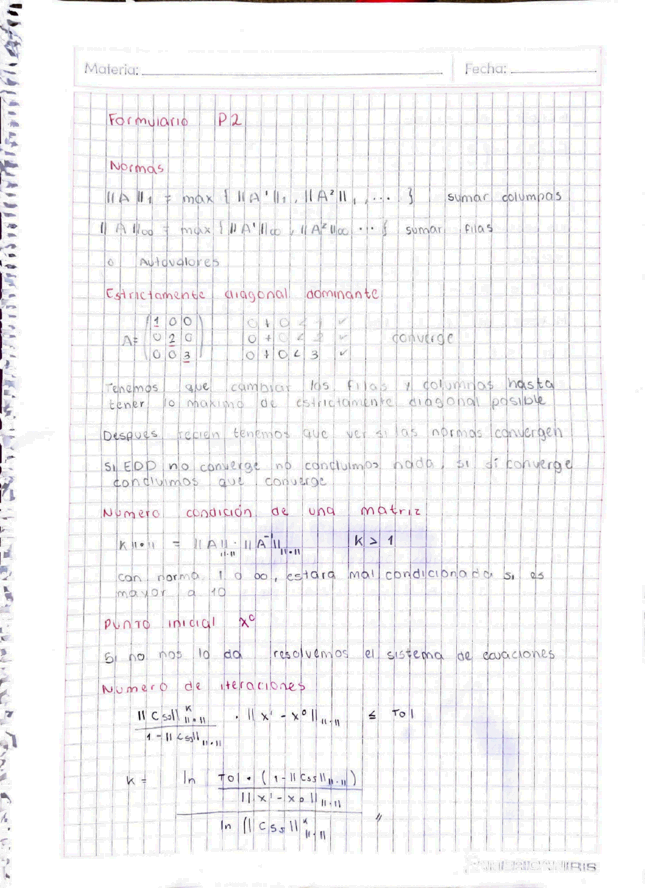 Materia: Fecha:
Formulario P2
Normas
||A||₁ = max { ||A¹||₁, ||A²||₁, ... } sumar columpas
||A||∞ = max { ||A¹||∞, ||A²||∞ ... } sumar filas
o Autovalores
Estrictamente diagonal dominante
A= (1 0 0 / 0 2 0 / 0 0 3)
0 + 0 < 1 ✓
0 + 0 < 2 ✓ converge
0 + 0 < 3 ✓
Tenemos que cambiar las filas y columnas hasta
tener lo maximo de estrictamente diagonal posible
Despues recien tenemos que ver si las normas convergen
Si EDD no converge no concluimos nada, si sí converge
concluimos que converge
Numero condición de una matriz
K ||•|| = ||A||||·|| · ||A⁻¹||||·|| K > 1
Con norma 1 o ∞, estara mal condicionada si es
mayor a 10
Punto inicial x⁰
Si no nos lo da resolvemos el sistema de ecuaciones
Numero de iteraciones
||CsJ||ᴷ||·|| / (1 - ||CsJ||||·||) · ||x¹ - x⁰||||·|| ≤ Tol
K = ln [Tol · (1 - ||CsJ||||·||) / ||x¹ - x₀||||·||] / ln (||CsJ||ᴷ||·||) //